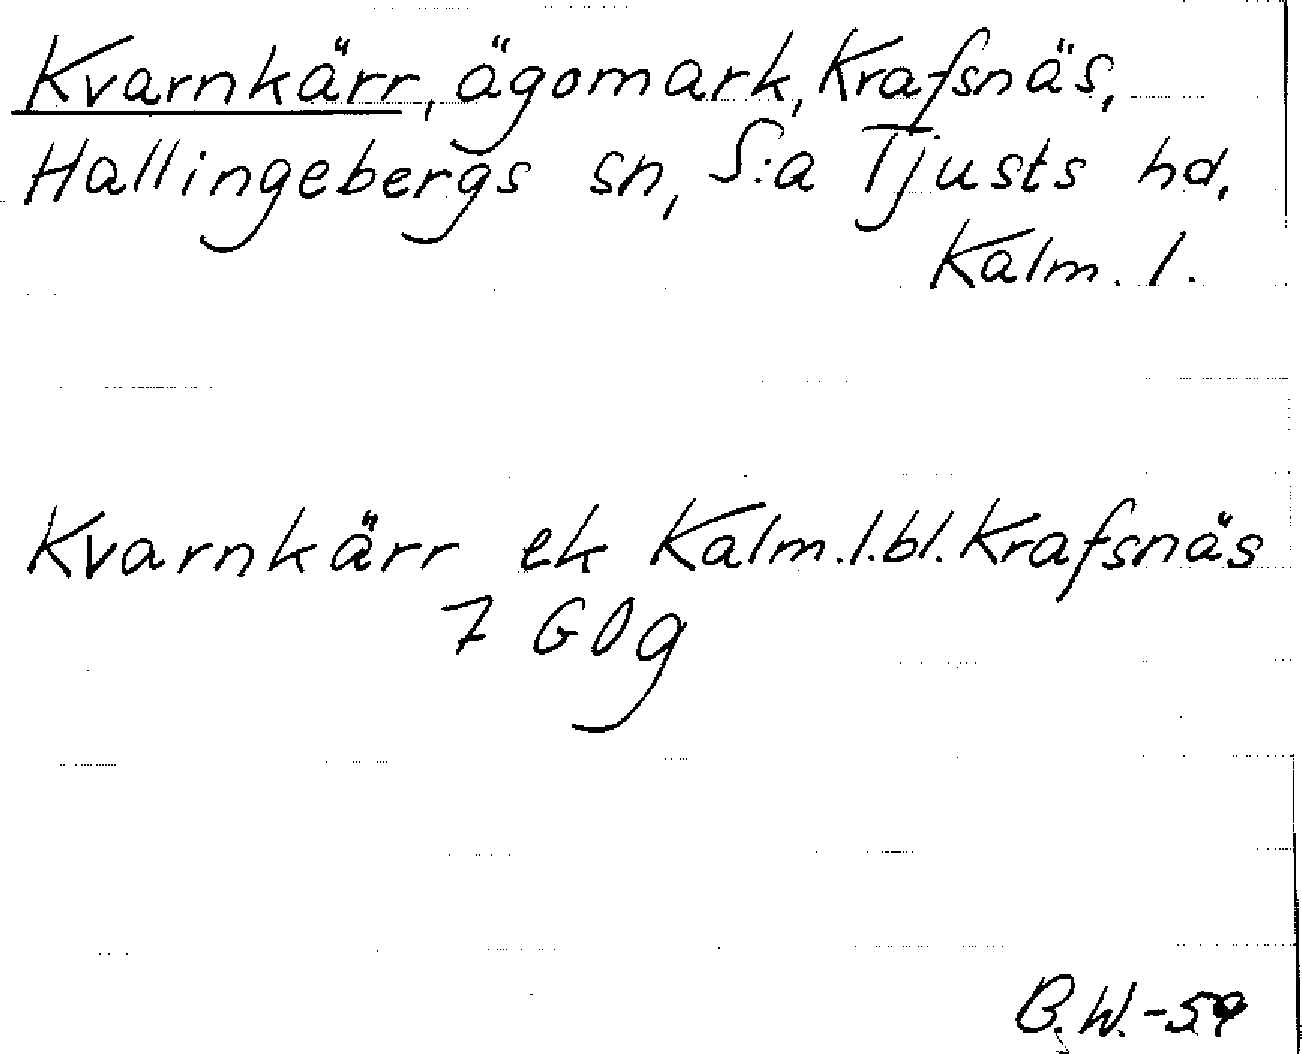 Kvarnkärr, ägomark, Krafsnäs,
Hallingebergs sn, S:a Tjusts hd.
Kalm. l.
Kvarnkärr ek Kalm.l.bl. Krafsnäs
7 GOg
B.W.-59